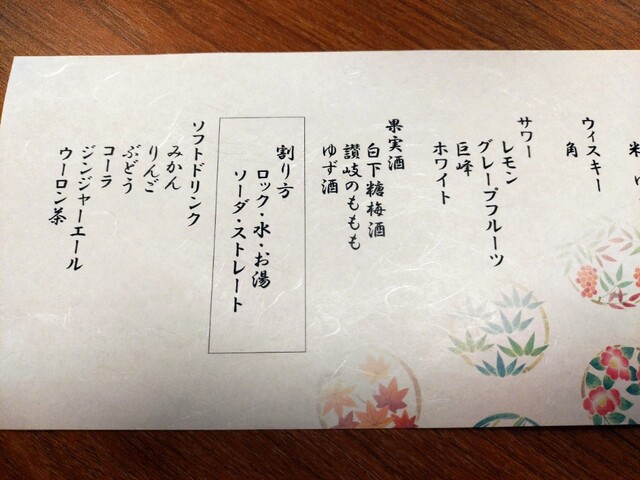 ウィスキー
角
サワー
レモン
グレープフルーツ
巨峰
ホワイト
果実酒
白下糖梅酒
讃岐のももも
ゆず酒
割り方
ロック・水・お湯
ソーダ・ストレート
ソフトドリンク
みかん
りんご
ぶどう
コーラ
ジンジャーエール
ウーロン茶